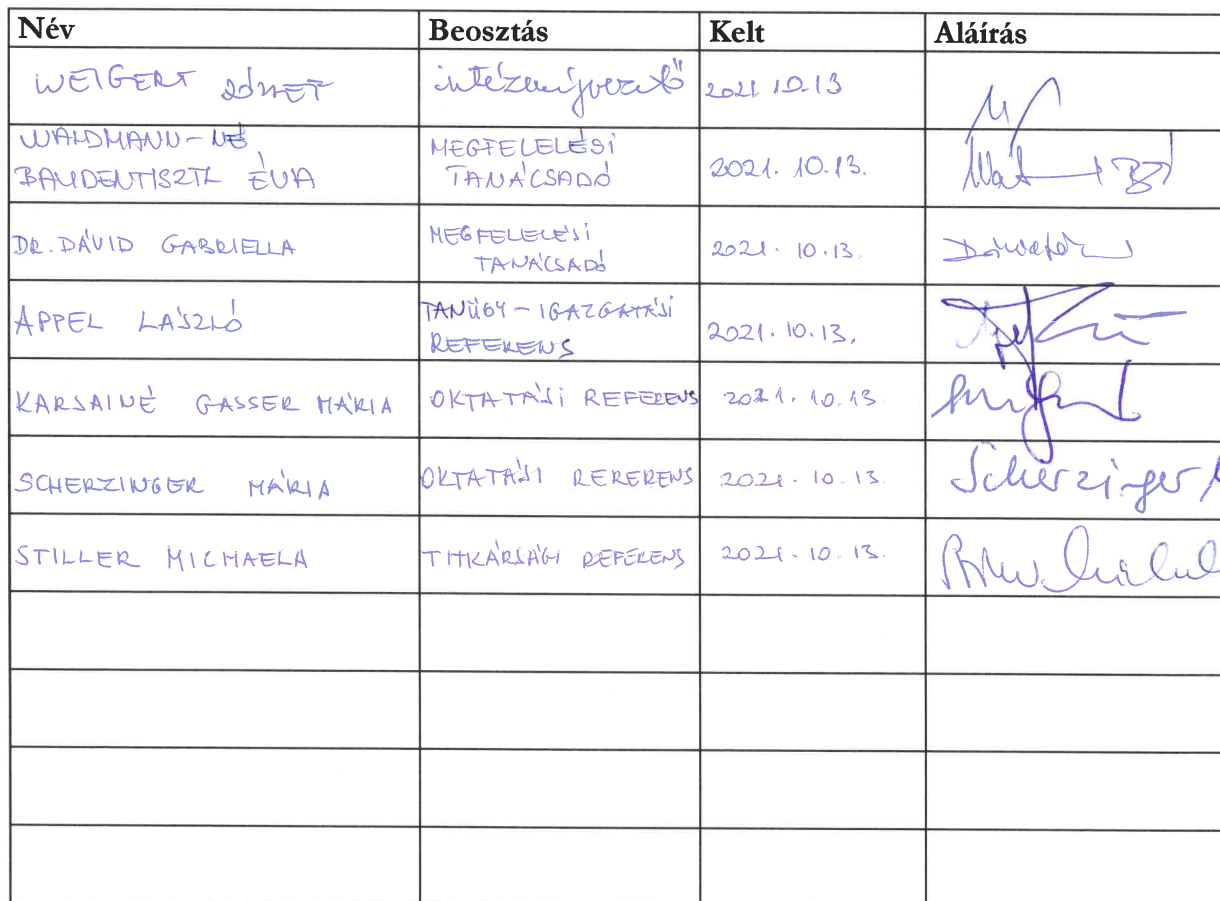 Név Beosztás Kelt Aláírás
WEIGERT JÓZSEF intézményvezető 2021.10.13
WALDMANN-NÉ
BAUDENTISZTL ÉVA MEGFELELÉSI
TANÁCSADÓ 2021.10.13.
DR. DÁVID GABRIELLA MEGFELELÉSI
TANÁCSADÓ 2021.10.13.
APPEL LÁSZLÓ TANÜGY-IGAZGATÁSI
REFERENS 2021.10.13.
KARSAINÉ GASSER MÁRIA OKTATÁSI REFERENS 2021.10.13
SCHERZINGER MÁRIA OKTATÁSI RERERENS 2021.10.13. Scherzinger
STILLER MICHAELA TITKÁRSÁGI REFERENS 2021.10.13.